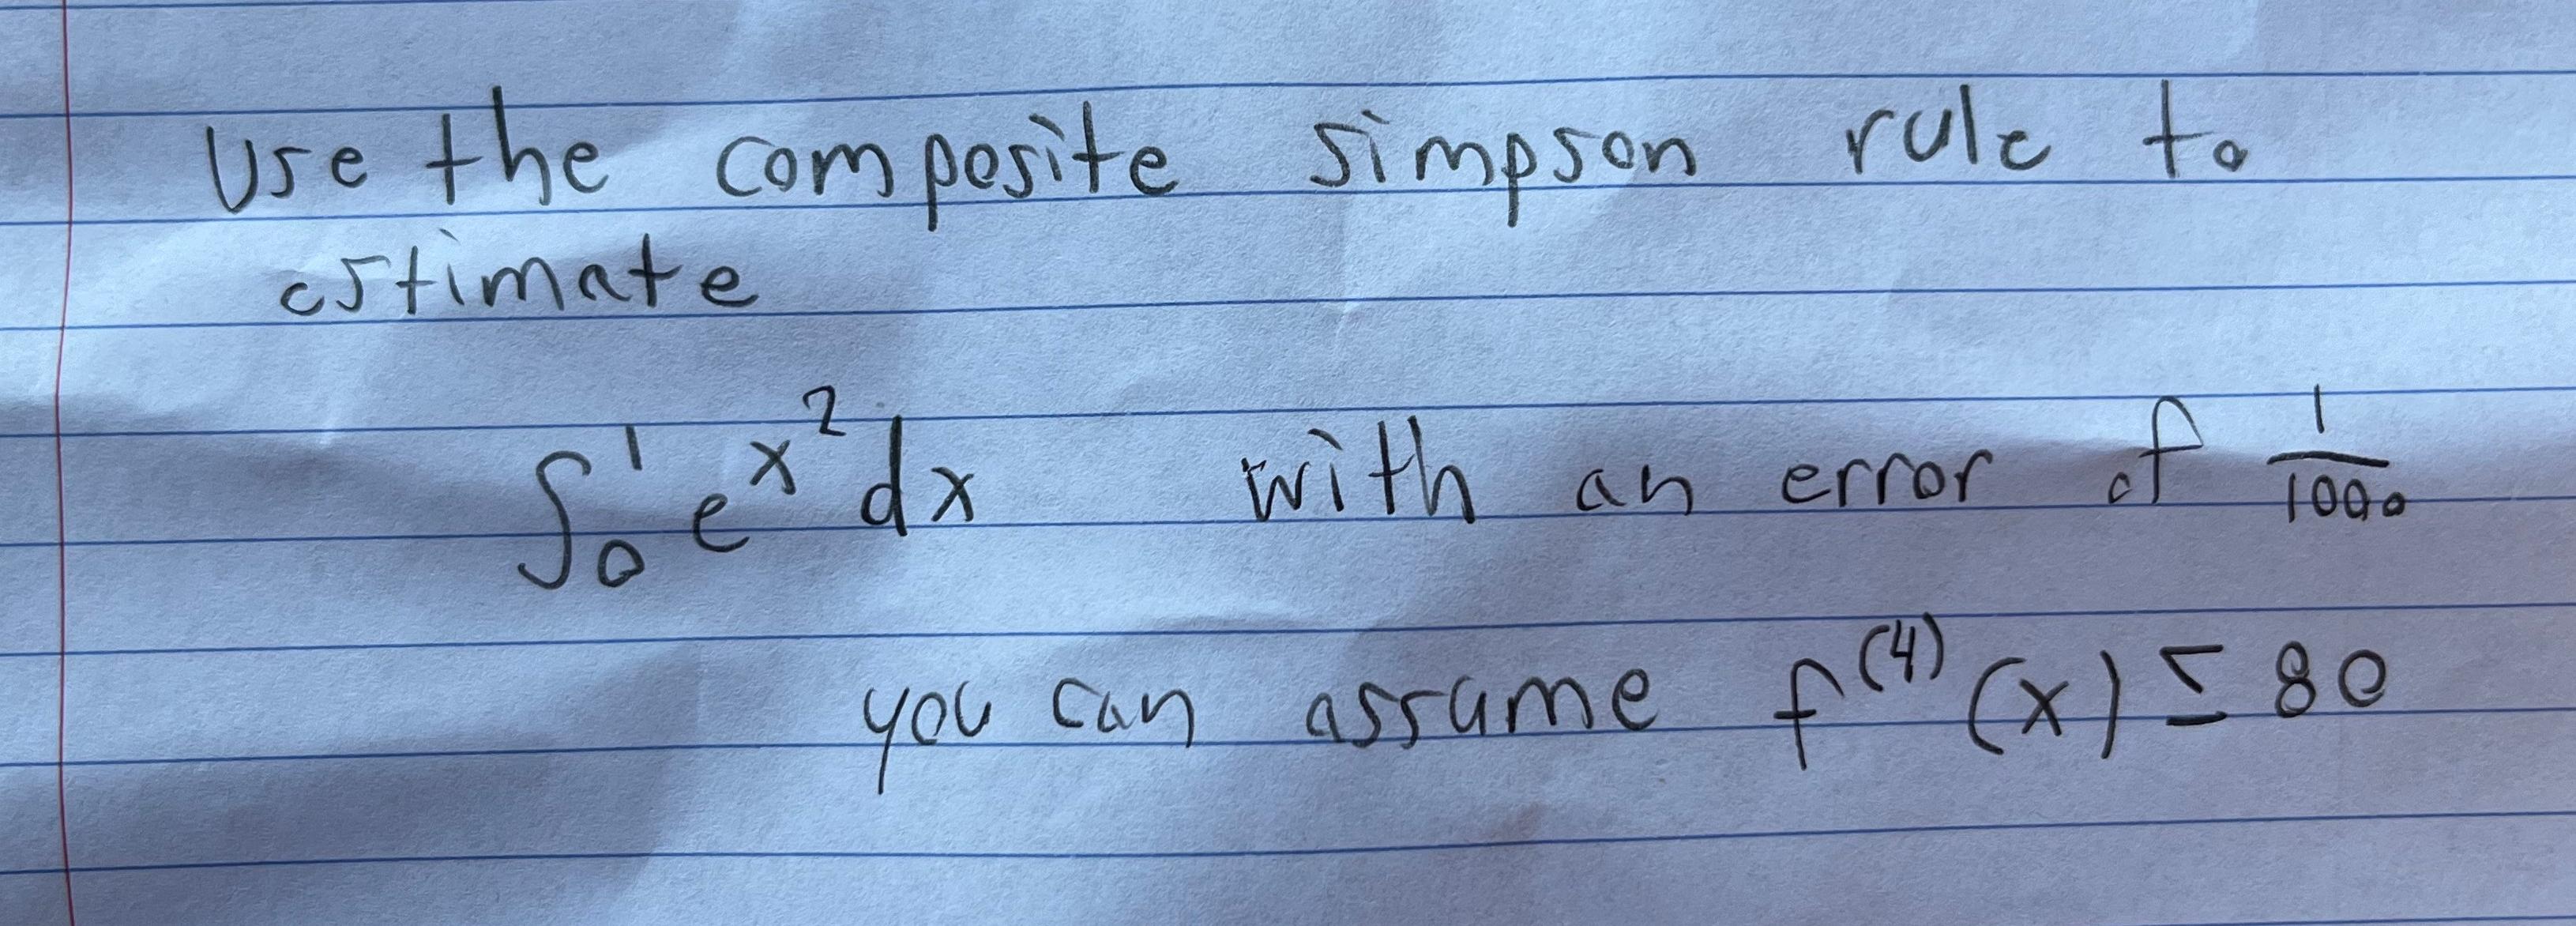 Use the composite simpson rule to
estimate
∫₀¹ e^x² dx with an error of 1/1000
you can assume f⁽⁴⁾(x) ≤ 80